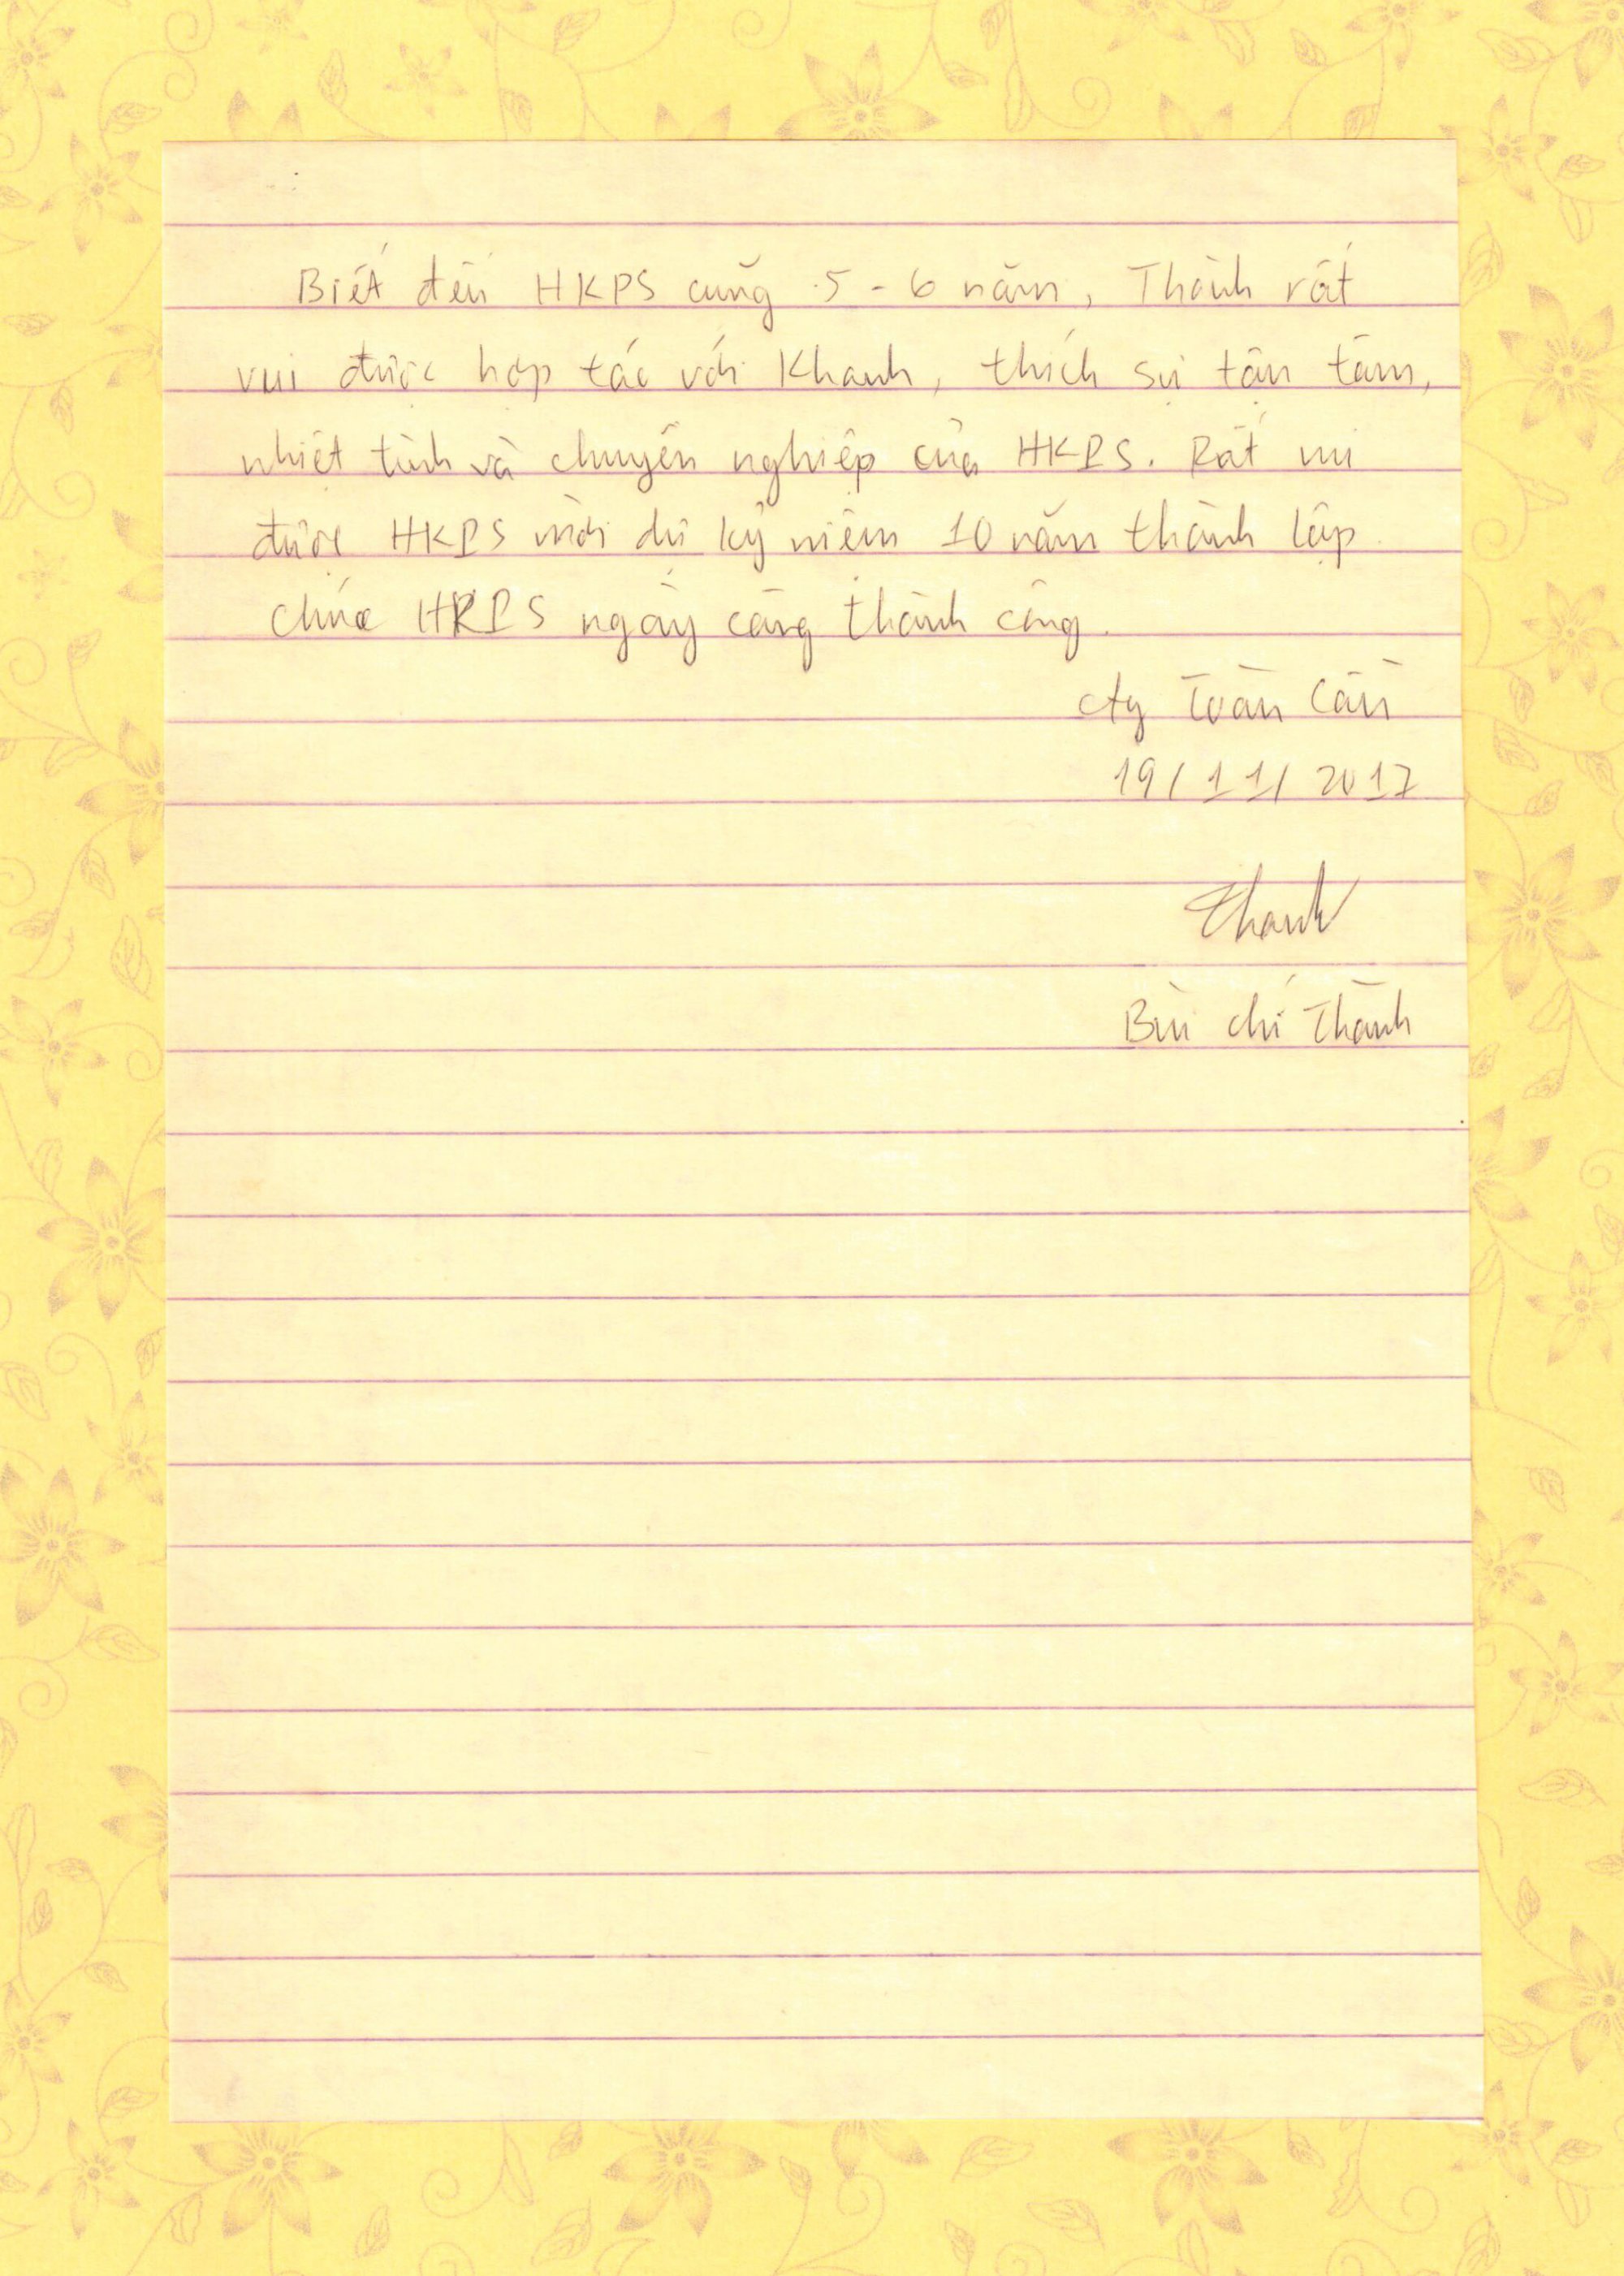 Biết đến HKPS cũng 5 - 6 năm, Thành rất
vui được hợp tác với Khanh, thích sự tận tâm,
nhiệt tình và chuyên nghiệp của HKPS. Rất vui
được HKPS mời dự kỷ niệm 10 năm thành lập.
Chúc HKPS ngày càng thành công.
cty Toàn Cầu
19/11/2017
Thanh
Bùi Chí Thành